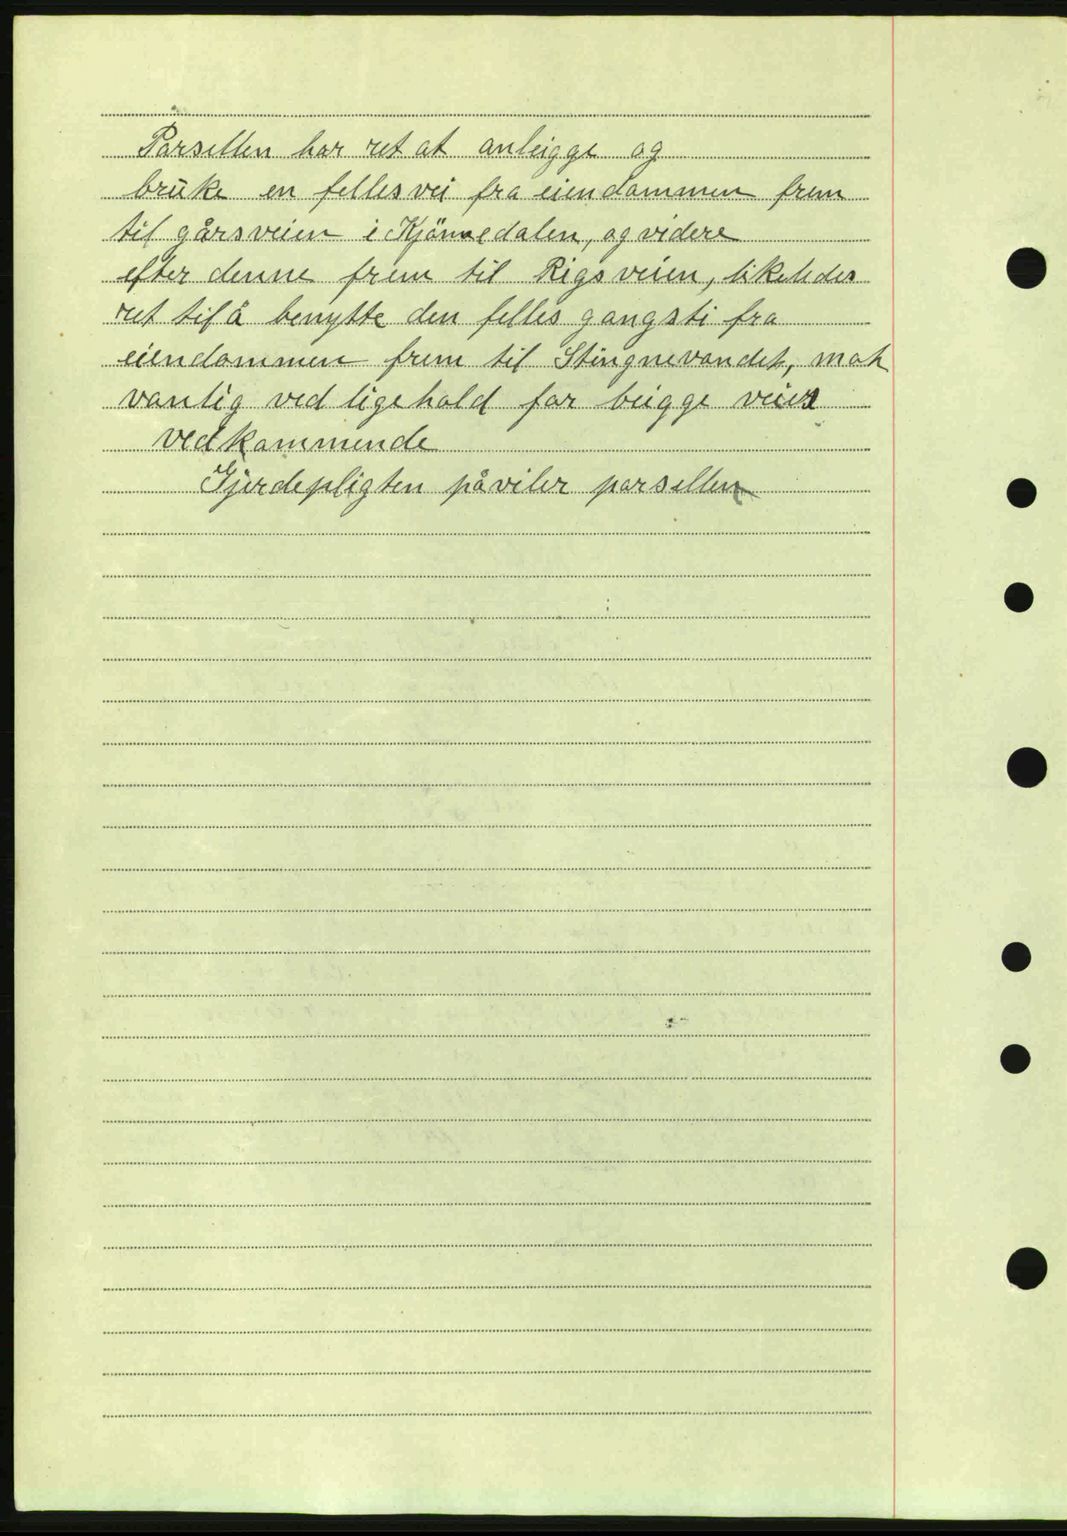 Parsellen har ret at anleigge og
bruke en felles vei fra eiendommen frem
til gårsveien i Kjönnedalen, og videre
efter denne frem til Rigsveien, likeledes
ret til å benytte den felles gangsti fra
eiendommen frem til Stingnevandet, mot
vanlig ved ligehold for beigge veier
vedkommende
Gjerdepligten påviler parsellen